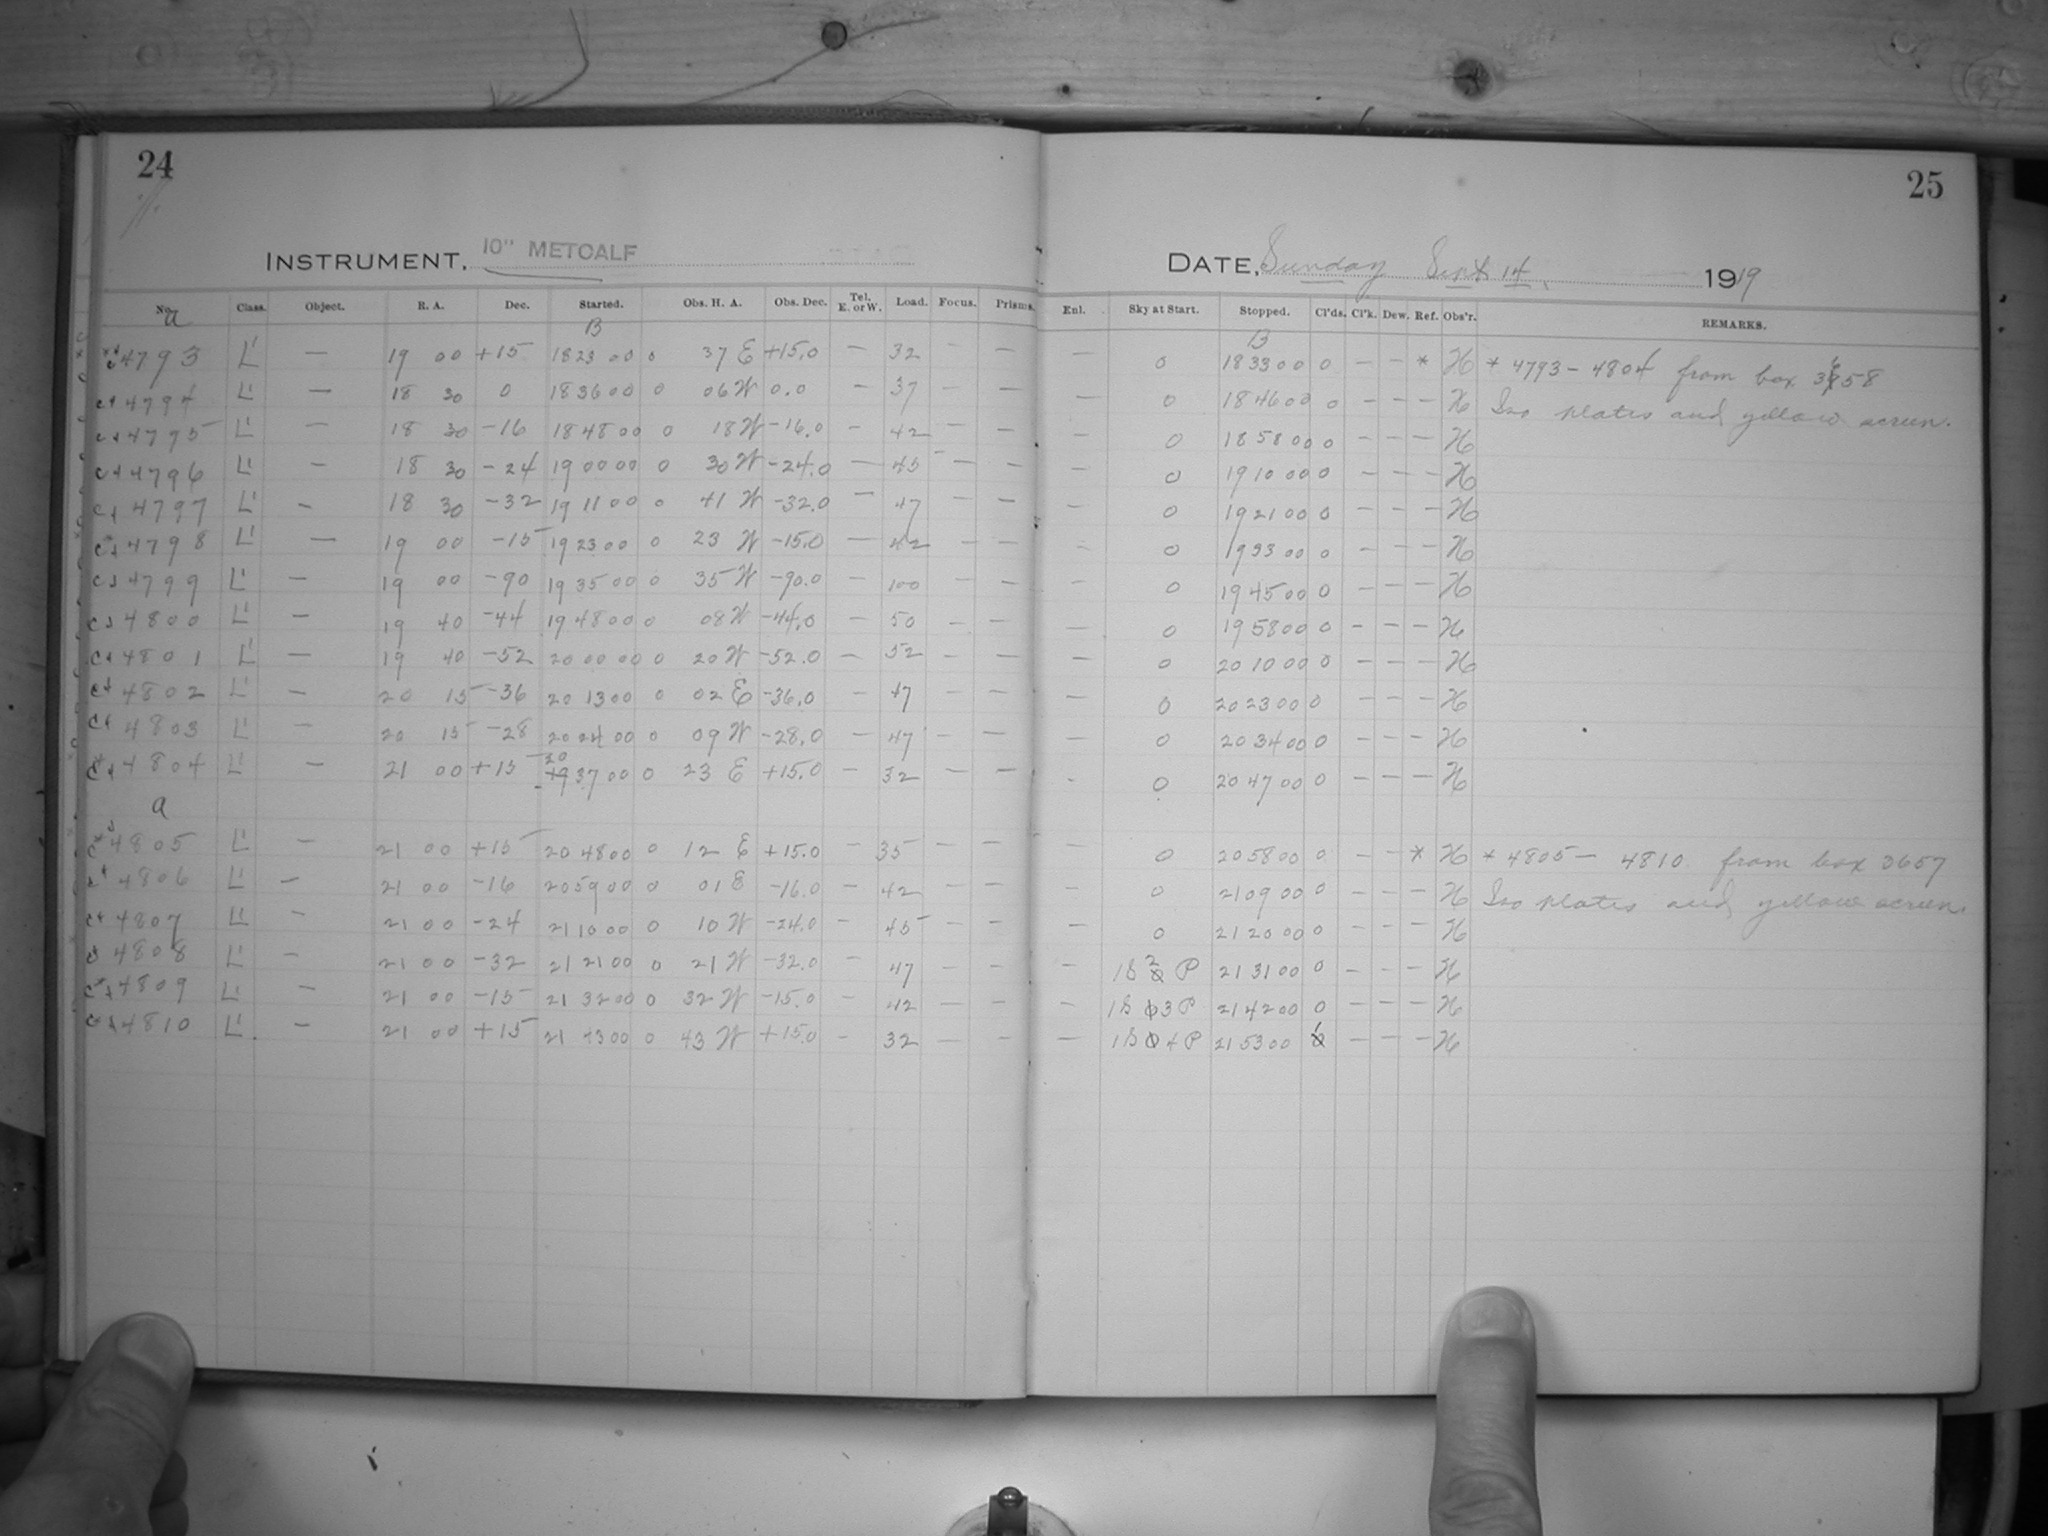 24
25
INSTRUMENT. 10" METCALF
DATE, Sunday Sept 14. 1919
No. Class. Object. R. A. Dec. Started. Obs. H. A. Obs. Dec. Tel. E. or W. Load. Focus. Prisms. Enl. Sky at Start. Stopped. Cl'ds. Cl'k. Dew. Ref. Obs'r. REMARKS.
a B B
4793 L' — 19 00 +15 18 23 00 0 37 E +15.0 — 32 — — — 0 18 33 00 0 — — * H * 4793 - 4804 from box 3658
4794 L' — 18 30 0 18 36 00 0 06 W 0.0 — 37 — — — 0 18 46 00 0 — — — H Iso plates and yellow screen.
4795 L' — 18 30 -16 18 48 00 0 18 W -16.0 — 42 — — — 0 18 58 00 0 — — — H
4796 L' — 18 30 -24 19 00 00 0 30 W -24.0 — 45 — — — 0 19 10 00 0 — — — H
4797 L' — 18 30 -32 19 11 00 0 41 W -32.0 — 47 — — — 0 19 21 00 0 — — — H
4798 L' — 19 00 -15 19 23 00 0 23 W -15.0 — 42 — — — 0 19 33 00 0 — — — H
4799 L' — 19 00 -90 19 35 00 0 35 W -90.0 — 100 — — — 0 19 45 00 0 — — — H
4800 L' — 19 40 -44 19 48 00 0 08 W -44.0 — 50 — — — 0 19 58 00 0 — — — H
4801 L' — 19 40 -52 20 00 00 0 20 W -52.0 — 52 — — — 0 20 10 00 0 — — — H
4802 L' — 20 15 -36 20 13 00 0 02 E -36.0 — 47 — — — 0 20 23 00 0 — — — H
4803 L' — 20 15 -28 20 24 00 0 09 W -28.0 — 47 — — — 0 20 34 00 0 — — — H
4804 L' — 21 00 +15 20 37 00 0 23 E +15.0 — 32 — — — 0 20 47 00 0 — — — H
a
4805 L' — 21 00 +15 20 48 00 0 12 E +15.0 — 35 — — 0 20 58 00 0 — — * H * 4805 — 4810 from box 3657
4806 L' — 21 00 -16 20 59 00 0 01 E -16.0 — 42 — — — 0 21 09 00 0 — — — H Iso plates and yellow screen.
4807 L' — 21 00 -24 21 10 00 0 10 W -24.0 — 45 — — — 0 21 20 00 0 — — — H
4808 L' — 21 00 -32 21 21 00 0 21 W -32.0 — 47 — — — 1S 2 P 21 31 00 0 — — — H
4809 L' — 21 00 -15 21 32 00 0 32 W -15.0 — 42 — — — 1S 3 P 21 42 00 0 — — — H
4810 L' — 21 00 +15 21 43 00 0 43 W +15.0 — 32 — — — 1S 4 P 21 53 00 — — — H